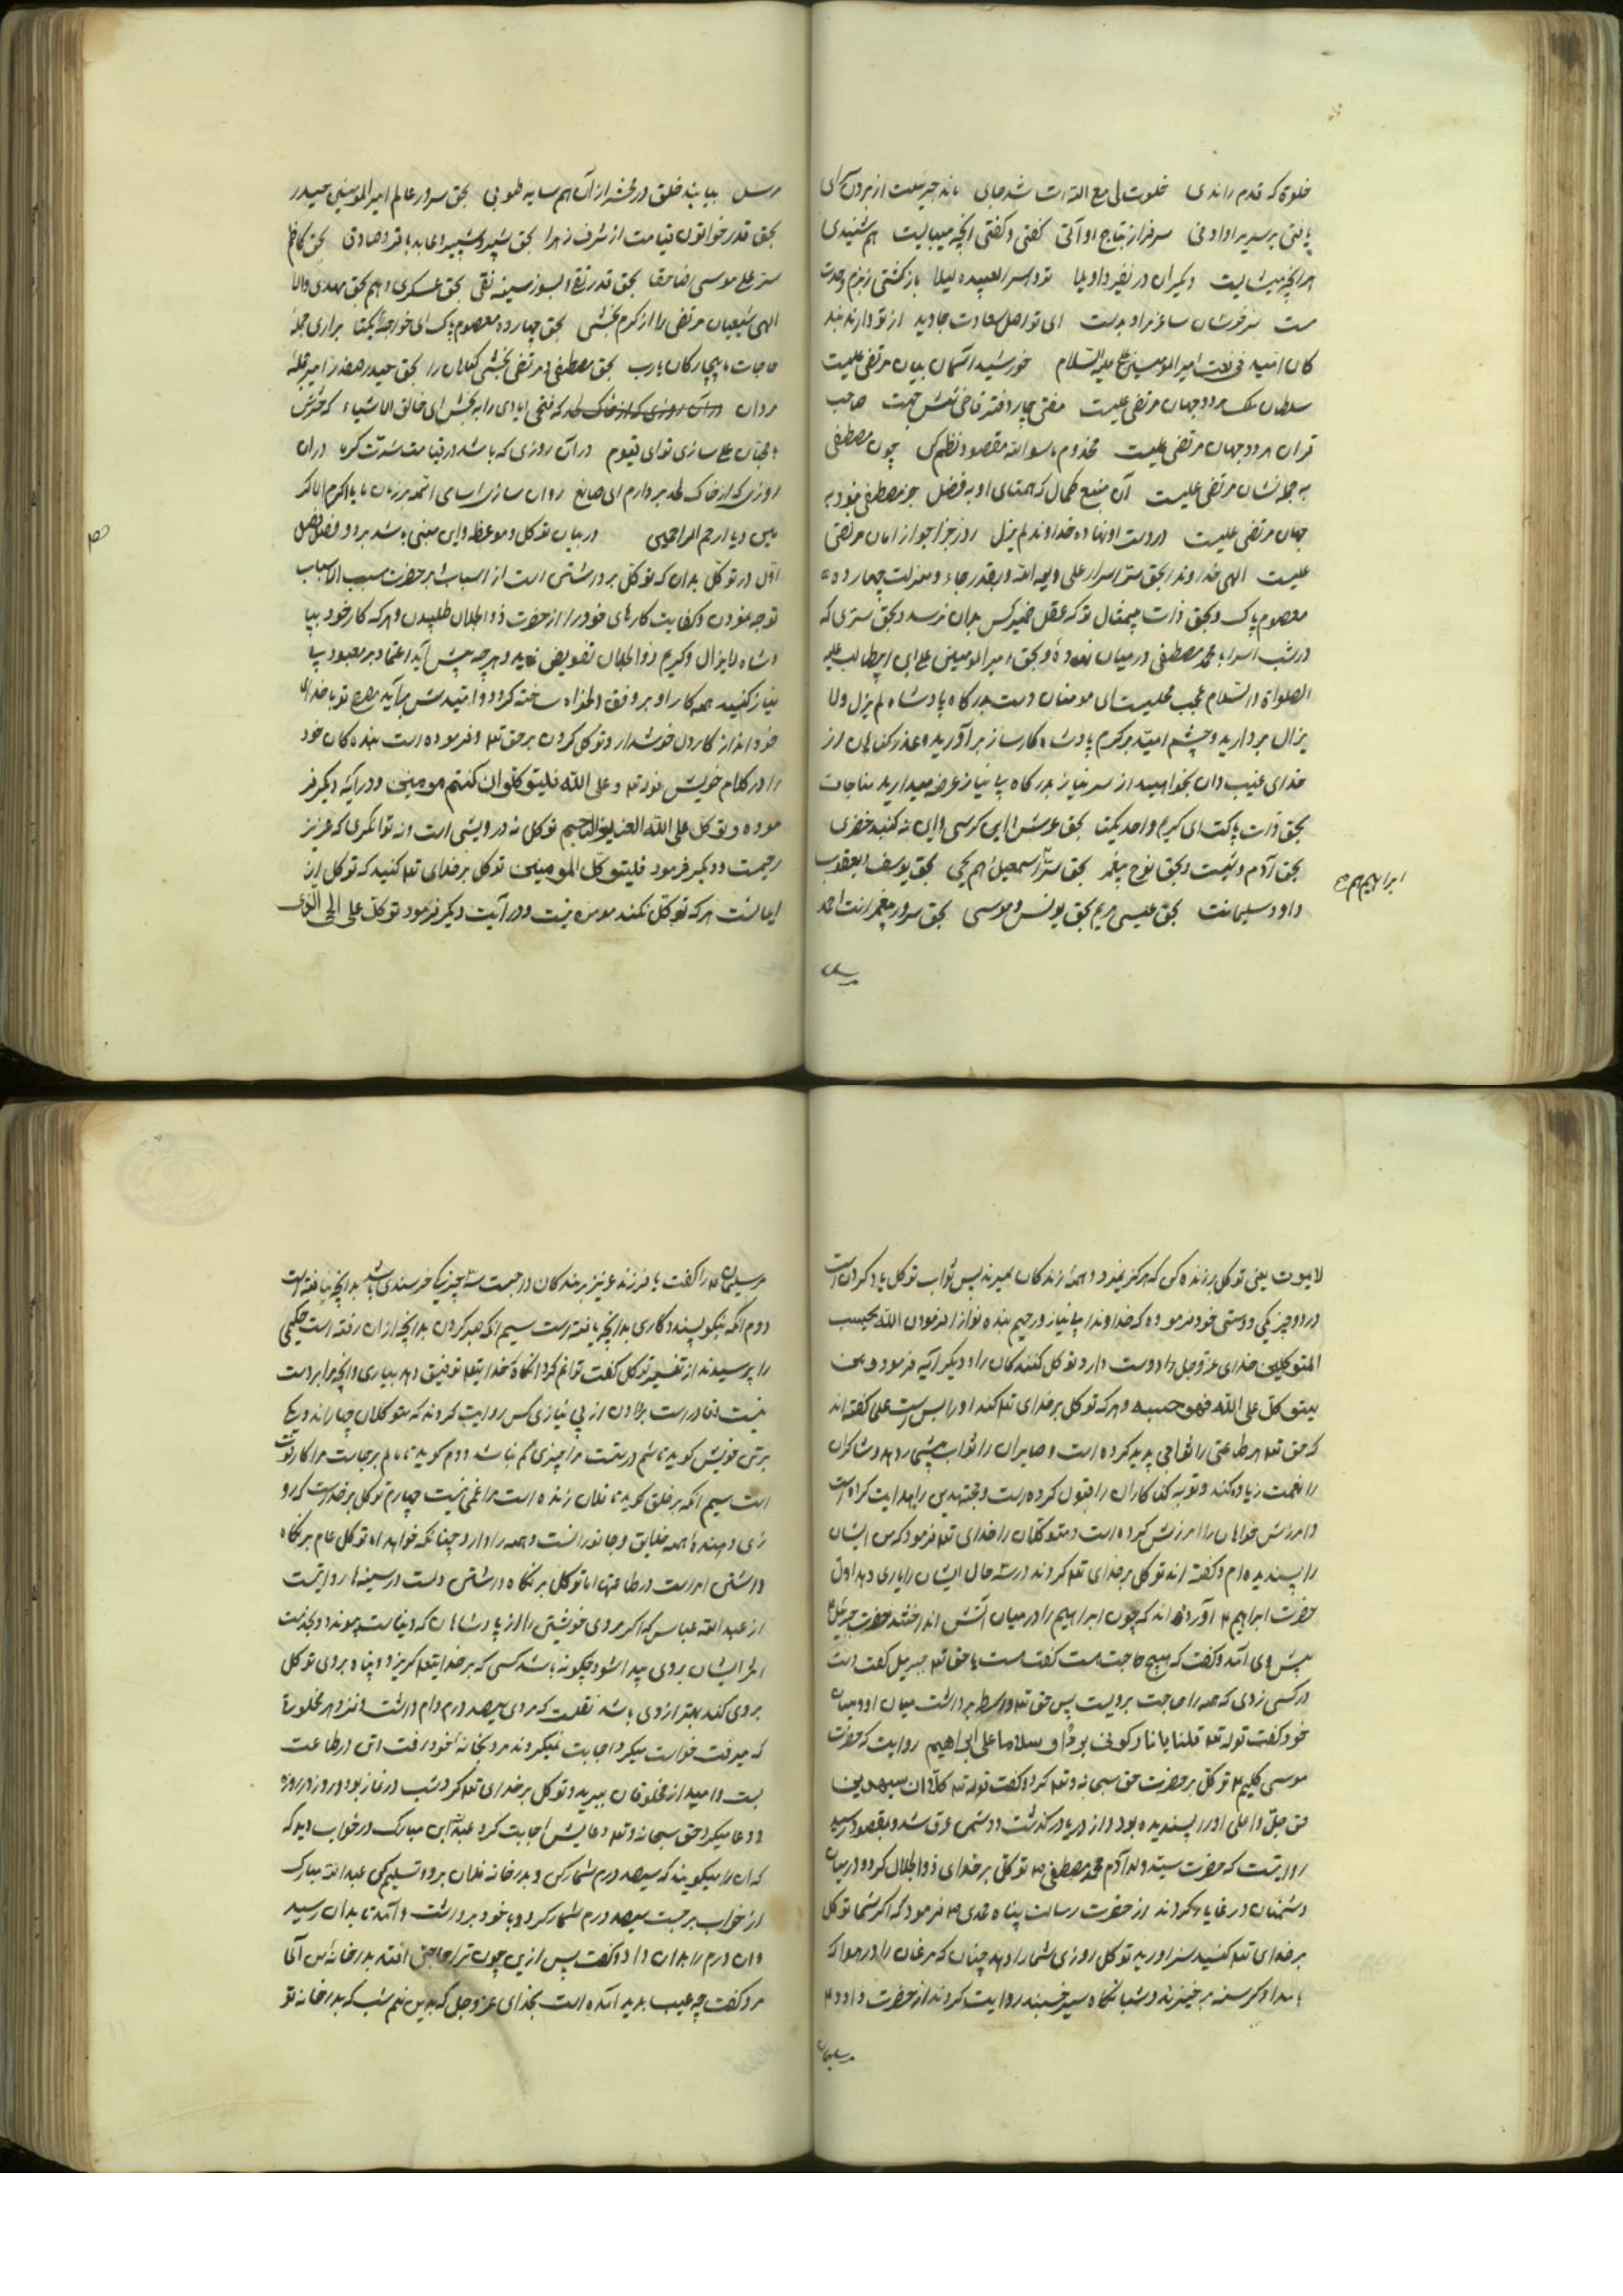 خلوة که قدم راندی خلوت لی مع الله ات شد جای ماند جبرئیلت از برون سرای
یافتی بر سریر او ادنی سرفراز بتاج او آتی گفتی و گفتی آنچه میبایست هم شنیدی
هر آنچه میشایست دیگران در نفیر و اویلا تو و اسرا بعبده لیلا باز گشتی ز بزم وحدت
مست سرخوشان ساغر مراد بدست ای تو اصل سعادت جاوید از تو دارند بند
کان امید فی نعت امیر المومنین علی علیه السلام خورشید آسمان بیان مرتضی علیست
سلطان ملک هر دو جهان مرتضی علیست مفتی چار دفتر قاضی شش جهت صاحب
قران هر دو جهان مرتضی علیست مخدوم ماسوا الله مقصود نظم کن چون مصطفی
به جمله نشان مرتضی علیست آن منبع کمال که همتای او به فضل جز مصطفی نبود به
جهان مرتضی علیست در دست او نهاده خداوند لم یزل روز جزا جواز امان مرتضی
علیست الهی خداوندا بحق سر اسرار علی ولی الله و بقدر جاه و منزلت چهارده
معصوم پاک و بحق ذات بیمثال تو که عقل هیچکس بدان نرسد و بحق سری که
در شب اسرا با محمد مصطفی در میان نهادۀ و بحق امیر المومنین علی ابن ابیطالب علیه
الصلواة والسلام عجب مجلیست ای مومنان دست بدرگاه پادشاه لم یزل ولا
یزال بردارید و چشم امید بر کرم پادشاه کارساز برآورید و عذر گناهان از
خدای غیب دان بخواهید از سر نیاز بدرگاه بی نیاز عرضه میدارید مناجات
بحق ذات پاکت ای کریم واحد یکتا بحق عرش و این کرسی و این نه گنبد خضری
بحق آدم و شیث و بحق نوح پیغمبر بحق ستر اسمعیل هم یحیی بحق یوسف و یعقوب
ابراهیم هم
داود سلیمانت بحق عیسی مریم بحق یونس و موسی بحق سرور پیغمبرانت احمد
مرسل
مرسل بیابند خلق در محشر از آن هم سایه طوبی بحق سرور عالم امیر المومنین حیدر
بحق قدر خواتون قیامت از شرف زهرا بحق شبر و شبیر و عابد باقر و صادق بحق کاظم
ستر علی موسی رضا حقا بحق قدر تقی و بسوز سینه نقی بحق عسکری و هم بحق مهدی والا
الهی شیعیان مرتضی را از کرم بخشی بحق چهارده معصوم پاک ای خواجۀ یکتا براری جمله
حاجات ما بیچارگان یارب بحق مصطفی و مرتضی بخشی گناهان را بحق حیدر صفدر امیر جملۀ
مردان در آن روزی که از خاک لحد که فتحی ایادی را به بخش ای خالق الاشیاء که حشرش
با محبان علی سازی توای قیوم در آن روزی که باشد در قیامت شدت گرما در آن
روزی که از خاک لحد بردارم ای صانع روان سازی اسامی ائمه بر زبان ما یا اکرم الاکر
مین و یا ارحم الراحمین در بیان توکل و موعظه و این مبنی باشد بر دو فصل فصل
اول در توکل بدان که توکل برداشتن است از اسباب بر حضرت مسبب الاسباب
توجه نمودن و کفایت کارهای خود را از حضرت ذوالجلال طلبیدن و هر که کار خود بپا
دشاه لایزال و کریم ذوالجلال تفویض نماید و هر چه پیش آید اعتماد بر معبود بی
نیاز کنید همه کار او بر وفق دلخواه ساخته گردد و امیدش برآید مصرع تو با خدای
خود انداز کار و دل خوشدار و توکل کردن بر حق تعه و فرموده است بنده کان خود
را در کلام خویش قوله تعه و علی الله فلیتوکلوا ان کنتم مومنین و در آیۀ دیگر فر
موده و توکل علی الله العزیز الرحیم توکل نه درویشی است و نه توانگری که عزیز
رحیمست و دیگر فرمود فلیتوکل المومنین توکل بر خدای تعه کنید که توکل از
ایمانست هر که توکل نکند مومن نیست و در آیت دیگر فرمود توکل علی الحی الذی
لایموت یعنی توکل بر زنده کن که هرگز نمیرد و همۀ زندگان بمیرند پس ثواب توکل یاد کردن است
در دو چیز یکی دوستی خود فرموده که خداوند بی نیاز و رحیم بنده نواز فرمودن الله یحب
المتوکلین خدای عز وجل دوست دارد توکل کنندگان را و دیگر آیه فرمود و من
یتوکل علی الله فهو حسبه و هر که توکل بر خدای تعه کند او را بس است علی گفته اند
که حق تعه هر طاعتی را ثوابی پدید کرده است و صابران را ثواب بیشمار دهد و شاکران
را نعمت زیاده کند و توبه گناکاران را قبول کرده است و مجتهدین را هدایت کرده است
و امرزش خواهان را امرزش کرده است و متوکلان را خدای تعه فرمود که من ایشان
را پسندیده ام و گفته اند توکل بر خدای تعه کردند در سه حال ایشان را یاری دهد اول
حضرت ابراهیم ع آورده اند که چون ابراهیم را در میان آتش انداختند حضرت جبرئیل ع
پیش وی آمد و گفت که هیچ حاجت هست گفت هست با حق تعه جبرئیل گفت دست
در کسی زدی که همه را حاجت بدوست پس حق تعه واسطه برداشت میان او و میان
خود گفت قوله تعه قلنا یا نار کونی بردا و سلاما علی ابراهیم روایت که حضرت
موسی کلیم ع توکل بر حضرت حق سبحانه و تعه کرد و گفت قوله تعه کلا ان سیهدین
حق جل و اعلی او را پسندیده بود و از دریا در گذشت و دشمن غرق شد و بمقصود رسید
روایتست که حضرت سید ولد آدم محمد مصطفی ص توکل بر خدای ذوالجلال کرد و در میان
دشمنان در غایار کردند از حضرت رسالت پناه محمدی ص فرمود که اگر شما توکل
بر خدای تعه کنید سزاوار به توکل روزی شما را دهد چنان که مرغان را در هوا که
بامداد گرسنه برخیزند و شبانگاه سیر خسبند روایت کردند از حضرت داود ع
مر سلیمان
مر سلیمان ع را گفت یا فرزند عزیز بر بندگان واجبست سه چیز یکی خرسندی باشد بدانچه یافته است
دوم آنکه نیکو پسندگاری بدانچه یافته است سیم آنکه صبر کردن بدانچه از آن رفته است حکیمی
را پرسیدند از تفسیر توکل گفت تو آنکه خدایتعه توفیق دهد بیاری و آنچه برابر دست
نیست و قادر است بدادن از بی نیازی کس روایت کردند که متوکلان چهاراند و یکی
برتن خویش گوید تا شم درستست مرا چیزی کم نباشد دوم گوید تا مالم بر جاست مرا کار نکوست
است سیم آنکه بر خلق گوید تا فلان زنده است مرا غمی نیست چهارم توکل بر خداست که رو
زی دهندۀ همه خلایق و جانورانست و همه را دارد چنانکه خواهد اما توکل عام بر نگاه
داشتن امراست در طاعتها اما توکل بر نگاه داشتن دلست در سینه ها روایتست
از عبد الله عباس که اگر مردی خویشتن را از پادشاهان که دنیاست پیوندد و بخدمت
اثر ایشان بر وی پیدا شود چگونه باشد کسی که بر خدایتعه گریزد و پناه بر وی توکل
بر وی کند بهتر از وی باشد نقلست که مردی سیصد درم وام داشت و نزد هر مخلوقۀ
که میرفت خواست میکرد اجابت نمیکردند مرد بخانۀ خود رفت اتی در طاعت
بست و امید از مخلوقان ببرید و توکل بر خدای تعه کرد شب در نماز بود و روز در روزه
و دعا میکرد حق سبحانه و تعه دعایش اجابت کرد عبدالله ابن مبارک در خواب دید که
که ان را میگویند که سیصد درم شمار کن و بدر خانه فلان برو و تسلیم کن عبدالله مبارک
از خواب برجست سیصد درم شمار کرد و با خود برداشت و آمد تا بدان رسید
و ان درم را بدان داد و گفت پس ازین چون ترا حاجتی افتد بدر خانۀ من آی
مرد گفت چه عیب پدید آمده است بخدای عز وجل که بدین نیم شب که بدر خانه تو